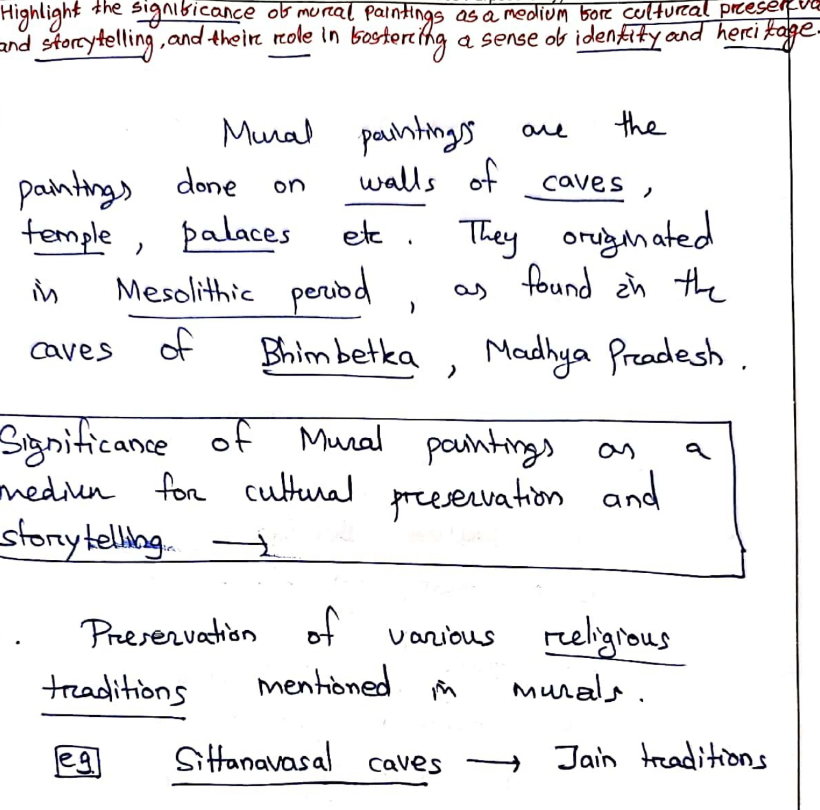 Highlight the significance of mural paintings as a medium for cultural preserva
and storytelling, and their role in fostering a sense of identity and heritage.
Mural paintings are the
paintings done on walls of caves,
temple, palaces etc. They originated
in Mesolithic period, as found in the
caves of Bhimbetka, Madhya Pradesh.
Significance of Mural paintings as a
medium for cultural preservation and
storytelling →
. Preservation of various religious
traditions mentioned in murals.
eg Sittanavasal caves → Jain traditions